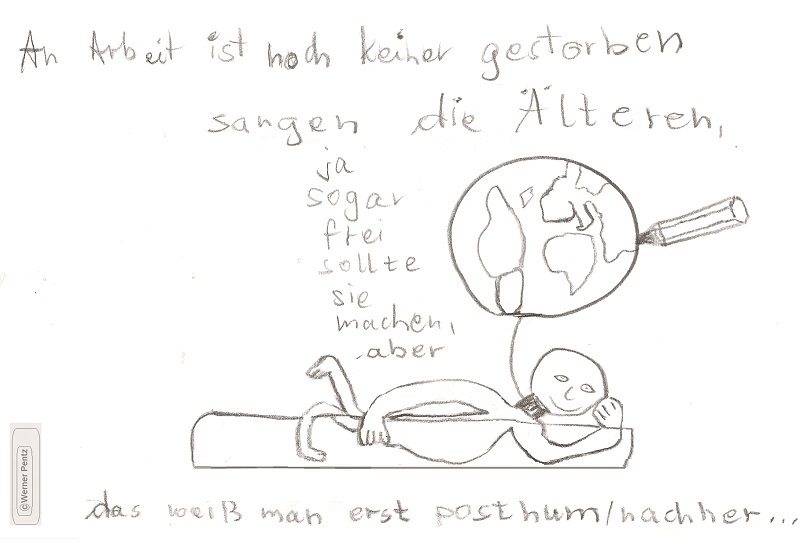 An Arbeit ist noch keiner gestorben
sangen die Älteren,
ja
sogar
frei
sollte
sie
machen,
aber
das weiß man erst posthum/nachher...
©Werner Pentz